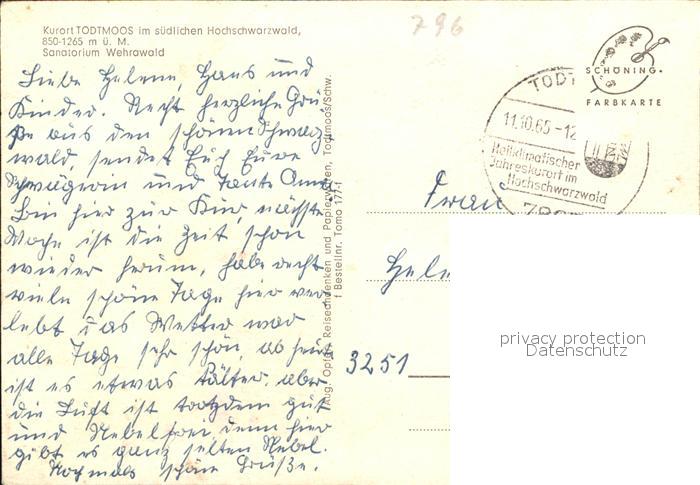 Kurort TODTMOOS im südlichen Hochschwarzwald,
850-1265 m ü. M.
Sanatorium Wehrawald
796
Liebe Helene, Hans und
Kinder. Recht herzliche Grü-
ße aus den schönen Schwarz-
wald, sendet Euch Eure
Schwägerin und Tante Anna
Bin hier zur Kur, nächste
Woche ist die Zeit schon
wieder herum, habe recht
viele schöne Tage hier ver
lebt das Wetter war
alle Tage sehr schön, ab heute
ist es etwas kälter, aber
die Luft ist trotzdem gut
und Nebelfrei denn hier
gibt es ganz selten Nebel.
Nochmals schöne Grüße.
Aug. Opfer, Reiseandenken und Papierwaren, Todtmoos/Schw.
f Bestellnr. Tomo 177-f
SCHÖNING
FARBKARTE
TODT
11.10.65-12
Heilklimatischer
Jahreskurort im
Hochschwarzwald
Frau
Hele
3251
privacy protection
Datenschutz